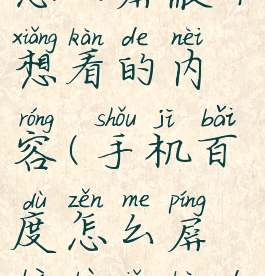 xiǎng kàn de nèi
想看的内
róng shǒu jī bǎi
容(手机百
dù zěn me píng
度怎么屏